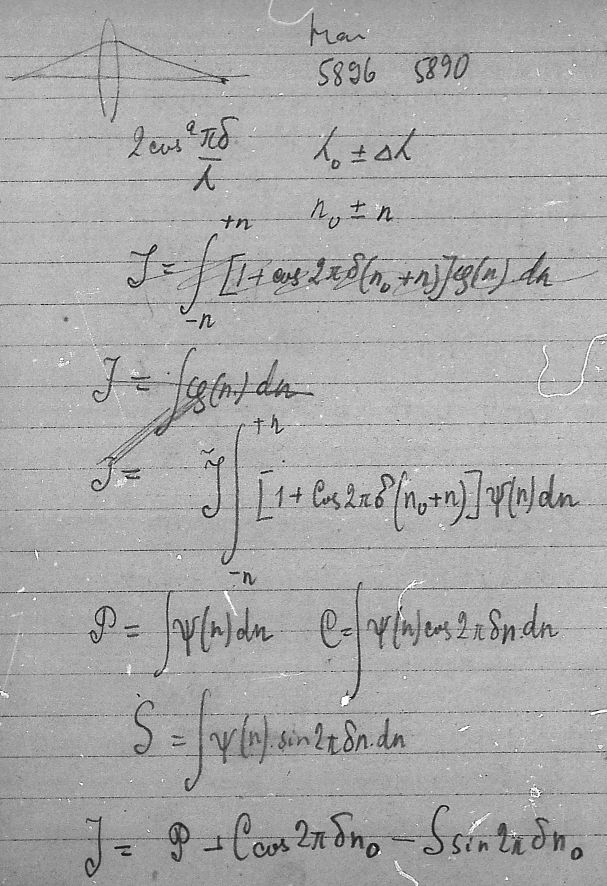 5896 5890
2cos² πδ/λ λ₀ ± Δλ
n₀ ± n
J = ∫₋ₙ⁺ⁿ [1 + cos 2πδ(n₀+n)]φ(n) dn
J = ∫φ(n) dn
J = J ∫₋ₙ⁺ⁿ [1 + Cos 2πδ(n₀+n)] ψ(n) dn
P = ∫ψ(n) dn C = ∫ψ(n) cos 2πδn.dn
S = ∫ψ(n).sin 2πδn.dn
J = P + C cos 2πδn₀ − S sin 2πδn₀